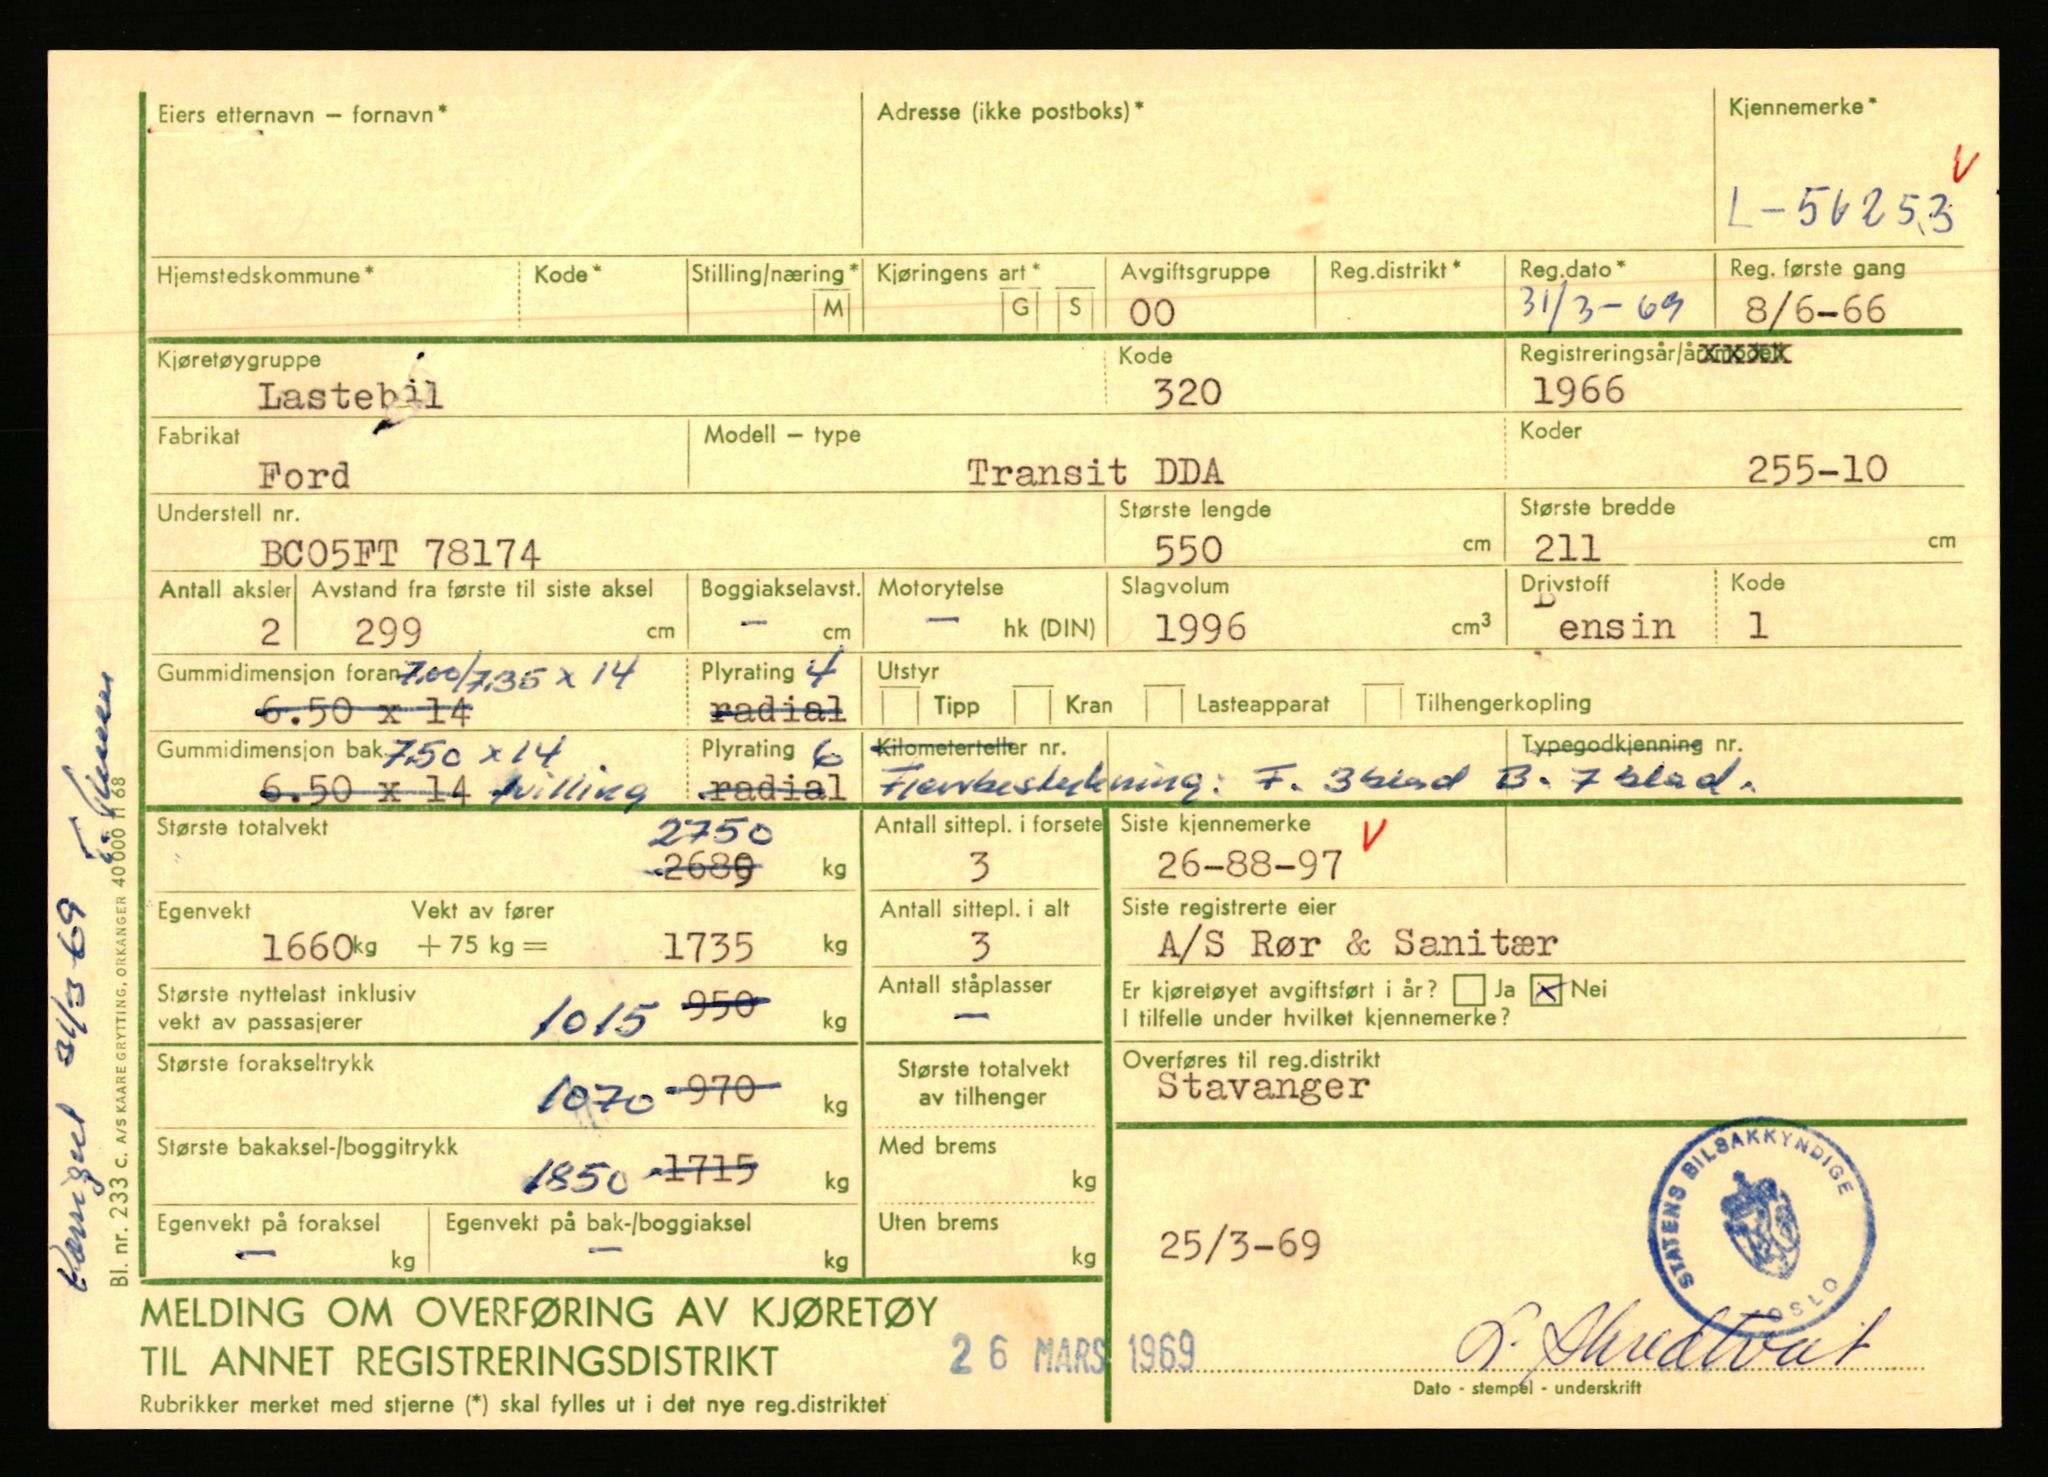 Eiers etternavn – fornavn*
Adresse (ikke postboks)*
Kjennemerke*
V
L-56253
Hjemstedskommune*
Kode*
Stilling/næring*
M
Kjøringens art*
G S
Avgiftsgruppe
00
Reg.distrikt*
Reg.dato*
31/3-69
Reg. første gang
8/6-66
Kjøretøygruppe
Lastebil
Kode
320
Registreringsår/årsmodell
1966
Fabrikat
Ford
Modell – type
Transit DDA
Koder
255-10
Understell nr.
BC05FT 78174
Største lengde
550 cm
Største bredde
211 cm
Antall aksler
2
Avstand fra første til siste aksel
299 cm
Boggiakselavst.
– cm
Motorytelse
– hk (DIN)
Slagvolum
1996 cm3
Drivstoff
Bensin
Kode
1
Gummidimensjon foran 7,00/7,35 x 14
6.50 x 14
Plyrating 4
radial
Utstyr
Tipp Kran Lasteapparat Tilhengerkopling
Gummidimensjon bak 7,50 x 14
6.50 x 14 tvilling
Plyrating 6
radial
Kilometerteller nr.
Typegodkjenning nr.
Fjærbestykning: F. 3 blad B. 7 blad.
Største totalvekt
2750
2689 kg
Antall sittepl. i forsete
3
Siste kjennemerke
26-88-97 V
Egenvekt
1660 kg
Vekt av fører
+ 75 kg = 1735 kg
Antall sittepl. i alt
3
Siste registrerte eier
A/S Rør & Sanitær
Største nyttelast inklusiv
vekt av passasjerer
1015 950 kg
Antall ståplasser
–
Er kjøretøyet avgiftsført i år? Ja x Nei
I tilfelle under hvilket kjennemerke?
Største forakseltrykk
1070 970 kg
Største totalvekt
av tilhenger
Overføres til reg.distrikt
Stavanger
Største bakaksel-/boggitrykk
1850 1715 kg
Med brems
kg
Egenvekt på foraksel
– kg
Egenvekt på bak-/boggiaksel
– kg
Uten brems
kg
25/3-69
STATENS BILSAKKYNDIGE
OSLO
MELDING OM OVERFØRING AV KJØRETØY
TIL ANNET REGISTRERINGSDISTRIKT
Rubrikker merket med stjerne (*) skal fylles ut i det nye reg.distriktet
26 MARS 1969
Dato - stempel - underskrift
Bl. nr. 233 C. A/S KAARE GRYTTING, ORKANGER 40 000 11 68
31/3 69